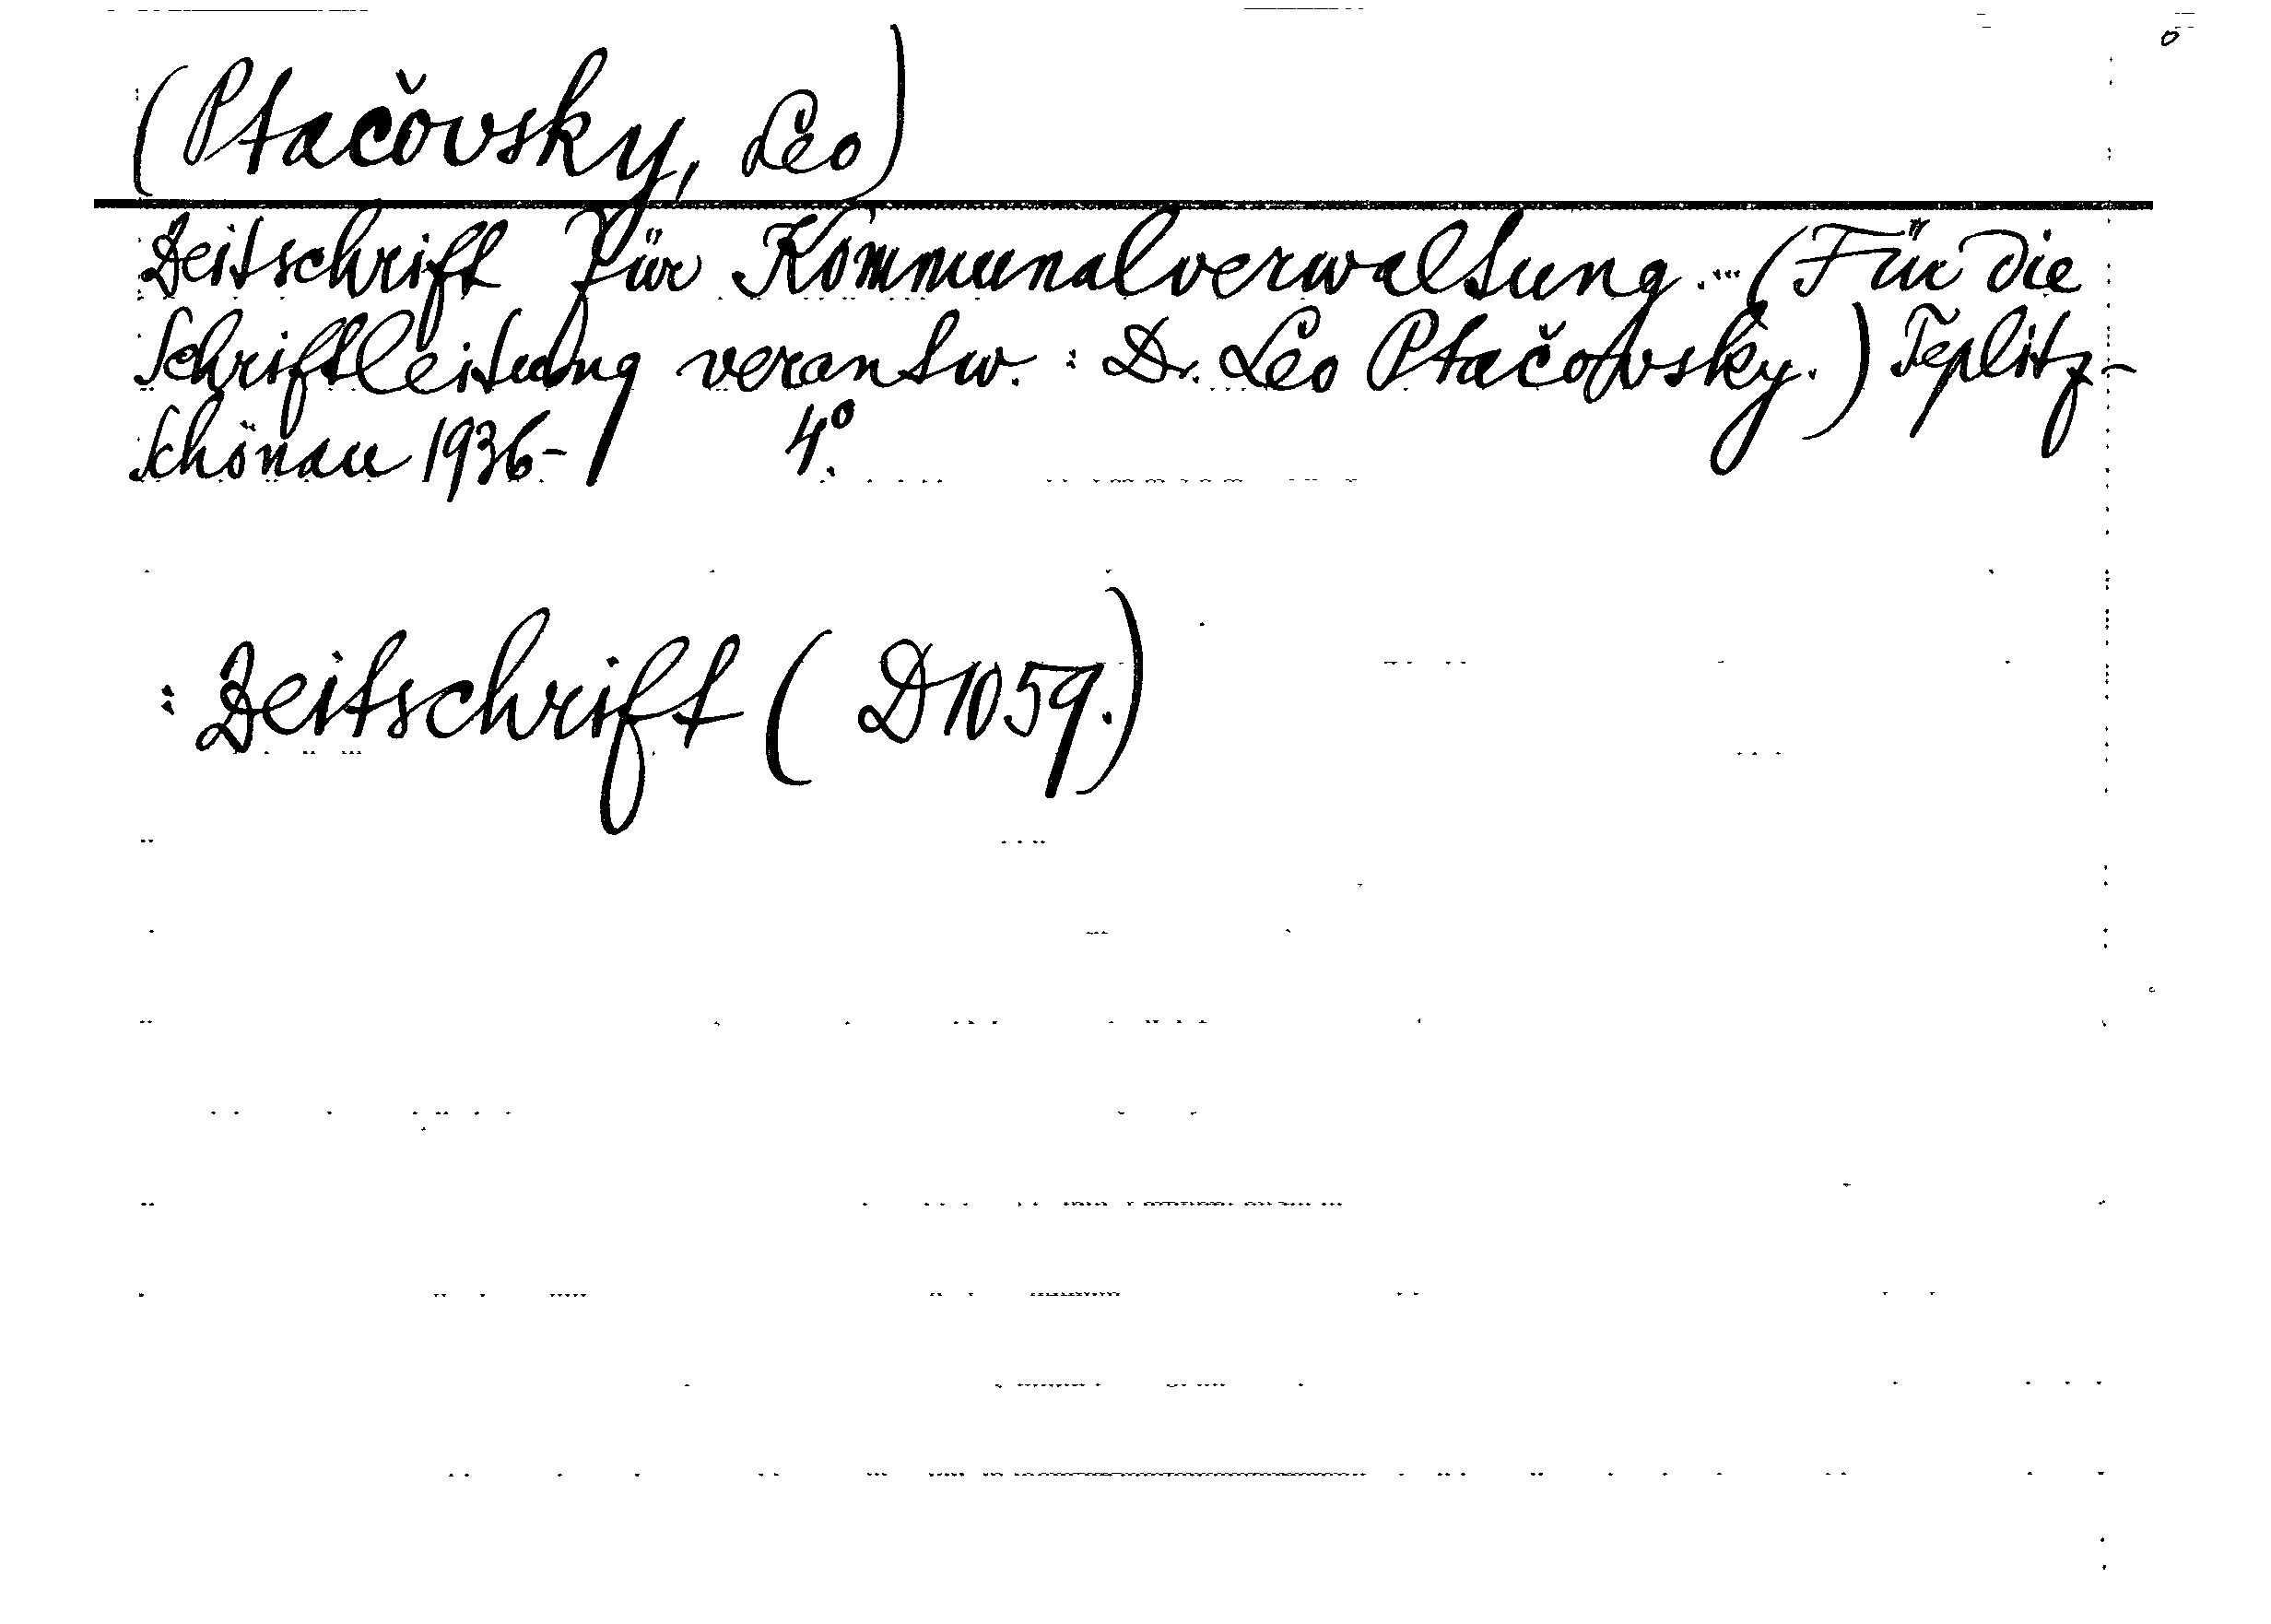 (Ptačovsky, Leo)
Zeitschrift für Kommunalverwaltung ... (Für die
Schriftleitung verantw. : Dr. Leo Ptačovsky.) Teplitz-
Schönau 1936- 4°.
: Zeitschrift ( D1059.)